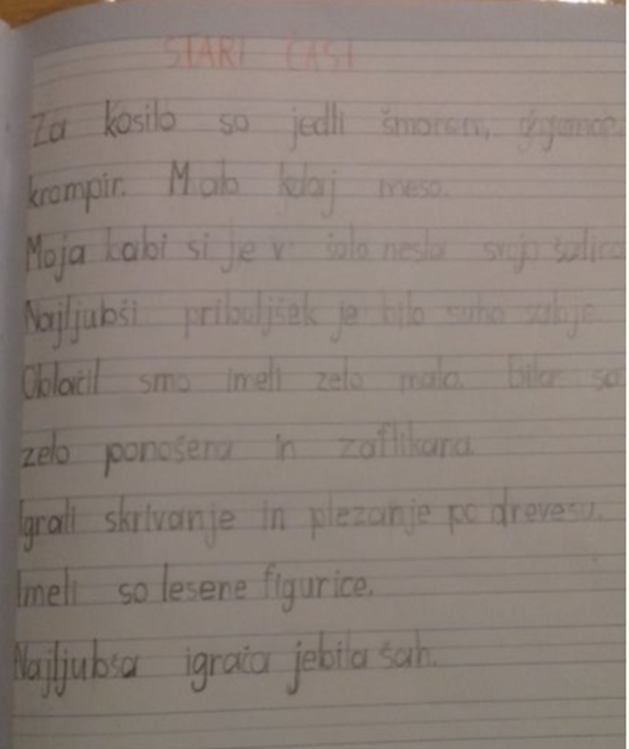 STARI ČASI
Za kosilo so jedli šmoren,
krompir. Malo kdaj meso.
Moja babi si je v šolo nesla svojo šalico
Najljubši priboljšek je bilo suho sadje.
Oblačil smo imeli zelo malo. Bila so
zelo ponošena in zaflikana.
Igrali skrivanje in plezanje po drevesu.
Imeli so lesene figurice.
Najljubša igrača jebila šah.